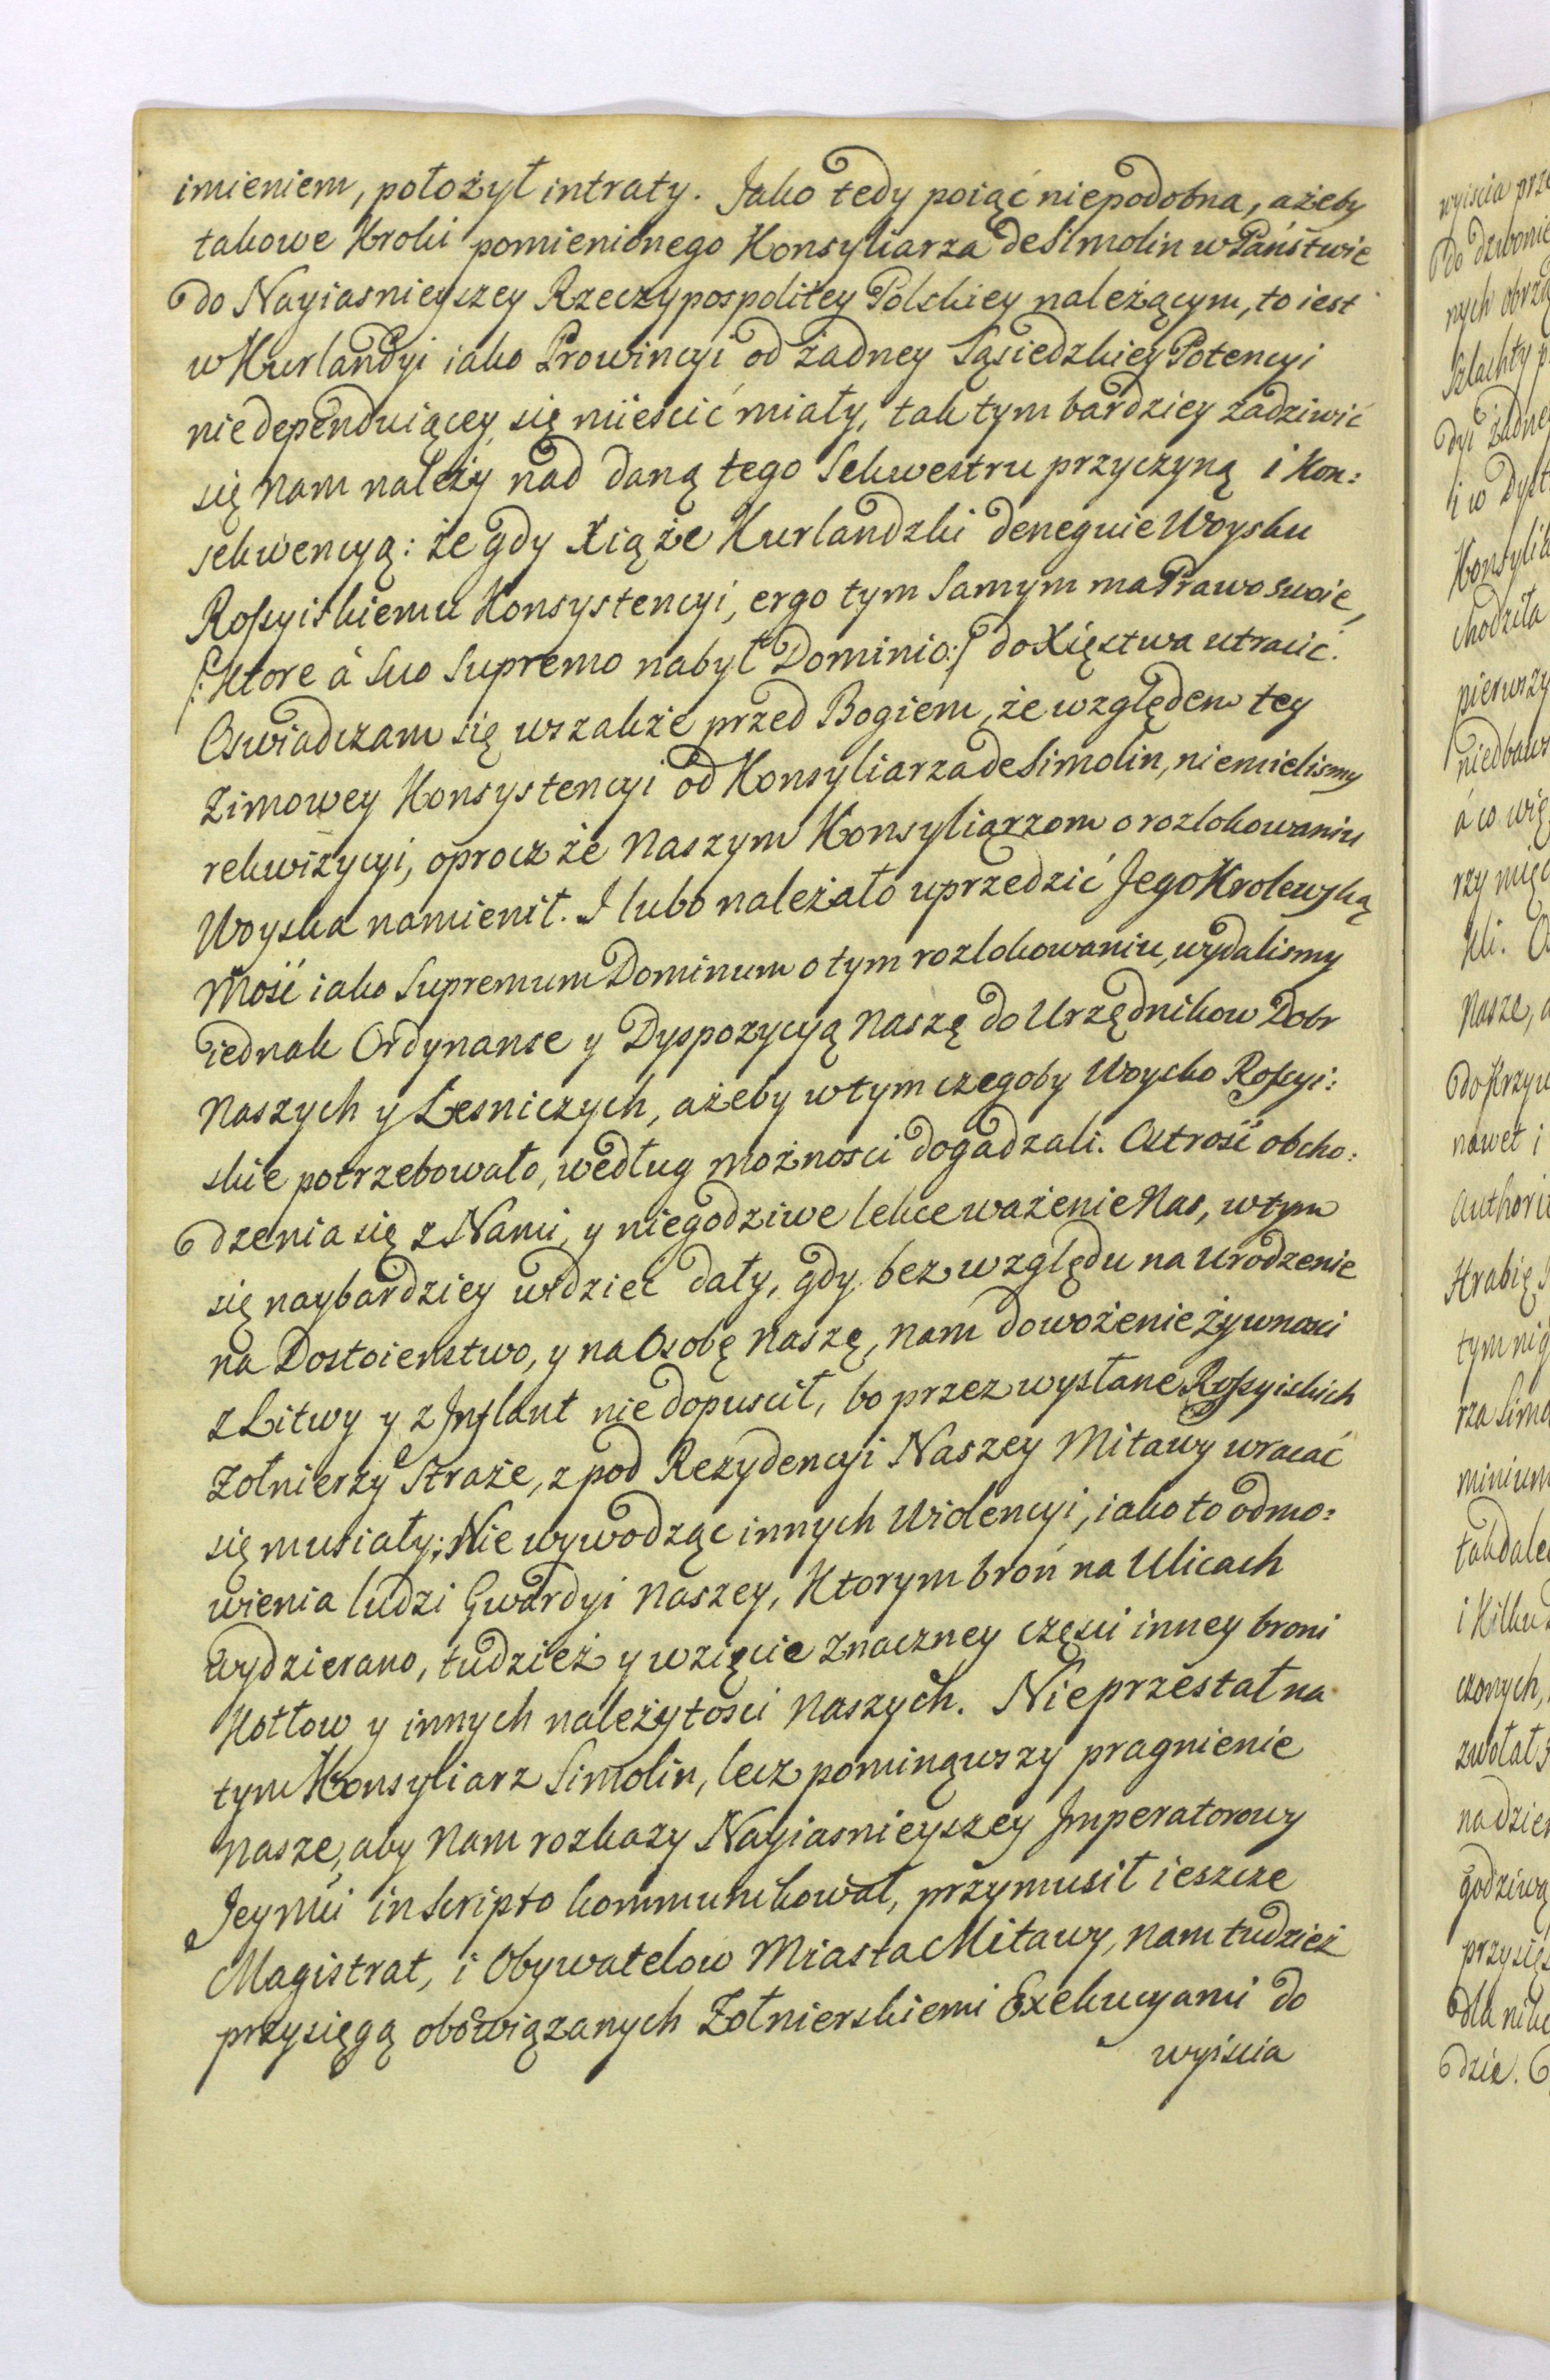 imieniem, położył intraty. Jako tedy poiąć niepodobna, ażeby
takowe Kroki pomienionego Konsyliarza de Simolin w Państwie
do Nayiasnieyszey Rzeczypospolitey Polskiey należącym, to iest
w Kurlandyi iako Prowincyi od żadney Sąsiedzkiey Potencyi
nie dependuiącey się mieścić miały, tak tym bardziey zadziwić
się nam należy nad daną tego Sekwestru przyczyną i Kon:
sekwencyą: że gdy Xiąże Kurlandzki deneguie Woysku
Rossyiskiemu Konsystencyi, ergo tym samym ma Prawo swoie,
/: ktore à suo Supremo nabył Dominio :/ do Xięstwa utracić.
Oswiadczam się wszakże przed Bogiem, że względem tey
zimowey Konsystencyi od Konsyliarza de Simolin, niemielismy
rekwizycyi, oprocz że naszym Konsyliarzom o rozlokowaniu
Woyska namienił. I lubo należało uprzedzić Jego Krolewską
Mość iako Supremum Dominum o tym rozlokowaniu, wydalismy
iednak Ordynanse y Dyspozycyą naszę do Urzędnikow Dobr
naszych y Lesniczych, ażeby w tym czegoby Woysko Rossyi:
skie potrzebowało, według możnosci dogadzali. Ostrość obcho:
dzenia się z Nami, y niegodziwe lekce ważenie Nas, w tym
się naybardziey widzieć dały, gdy bez względu na urodzenie
na Dostoienstwo, y na Osobę naszę, nam dowożenie żywnosci
z Litwy y z Inflant nie dopuscił, bo przez wysłane Rossyiskich
Zołnierzy Straże, z pod Rezydencyi Naszey Mitawy wracać
się musiały; Nie wywodząc innych Violencyi, iako to odmo:
wienia ludzi Gwardyi naszey, ktorym broń na Ulicach
wydzierano, tudzież y wzięcie znaczney częsci inney broni
Kotłow y innych należytosci naszych. Nie przestał na
tym Konsyliarz Simolin, lecz pominąwszy pragnienie
nasze, aby nam rozkazy Nayiasnieyszey Imperatorowy
Jeymci in scripto kommunikował, przymusił ieszcze
Magistrat, i Obywatelow Miasta Mitawy, nam tudzież
przysięgą obowiązanych Zołnierskiemi Exekucyami do
wyiscia